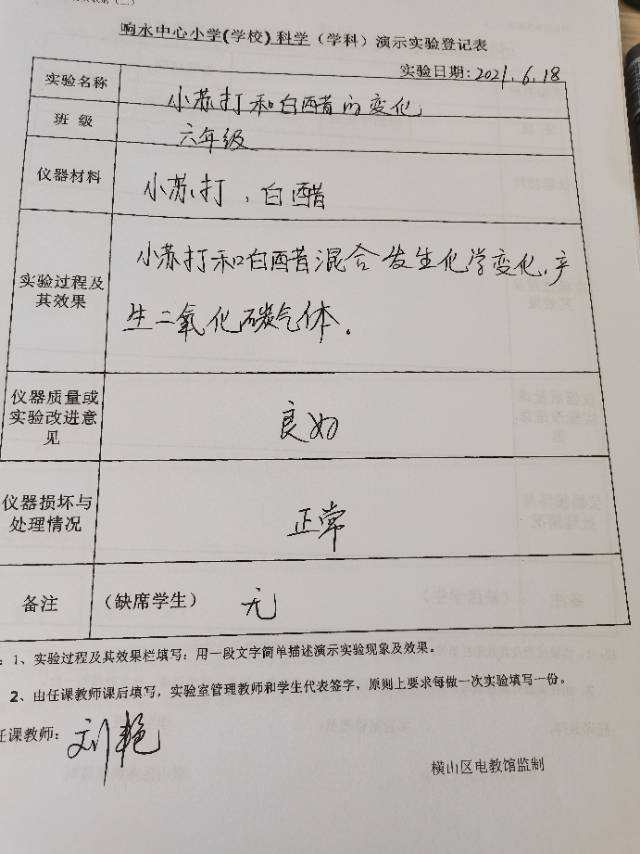 响水中心小学(学校)科学(学科)演示实验登记表
实验日期:2021.6.18
实验名称 小苏打和白醋的变化
班 级 六年级
仪器材料 小苏打、白醋
实验过程及其效果 小苏打和白醋混合发生化学变化,产
生二氧化碳气体.
仪器质量或
实验改进意
见
良好
仪器损坏与
处理情况
正常
备注 (缺席学生) 无
:1、实验过程及其效果栏填写:用一段文字简单描述演示实验现象及效果。
2、由任课教师课后填写,实验室管理教师和学生代表签字,原则上要求每做一次实验填写一份。
任课教师: 刘艳
横山区电教馆监制